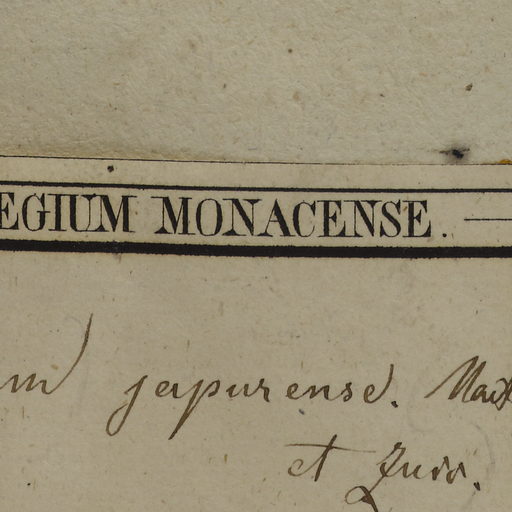 EGIUM MONACENSE.
m japurense. Mart
et Zucc.